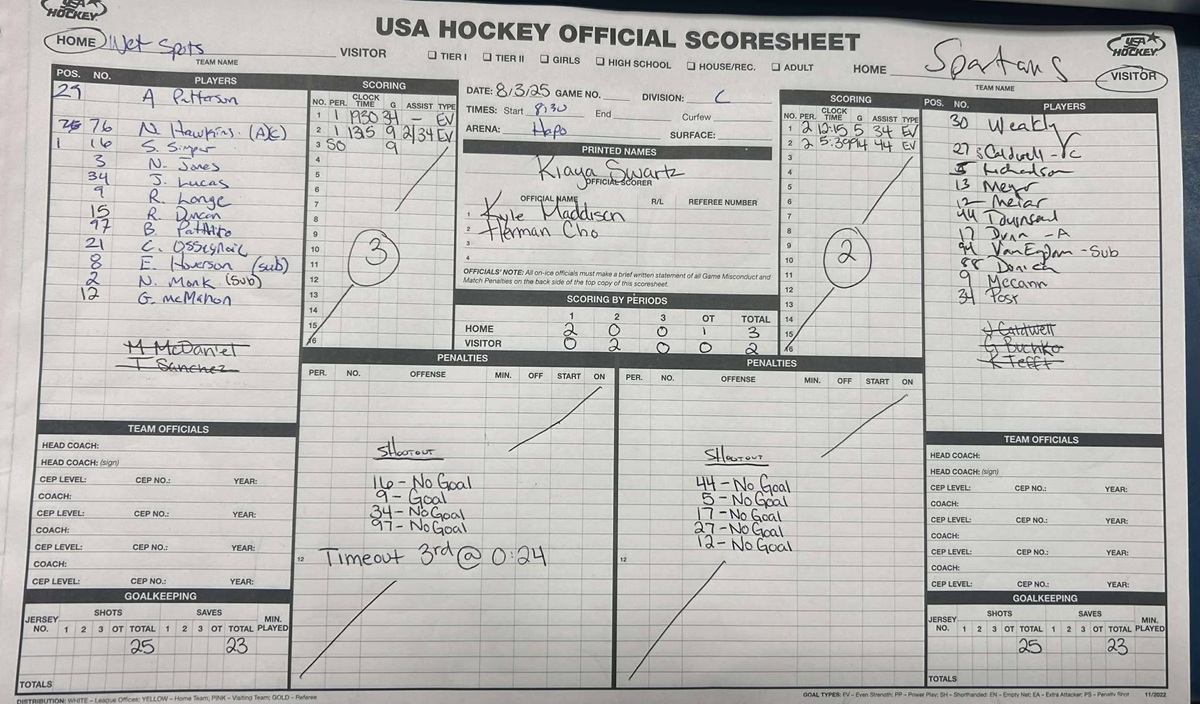 USA HOCKEY
USA HOCKEY OFFICIAL SCORESHEET
USA HOCKEY
HOME Wet Spots VISITOR
TEAM NAME
☐ TIER I ☐ TIER II ☐ GIRLS ☐ HIGH SCHOOL ☐ HOUSE/REC. ☐ ADULT
HOME Spartans VISITOR
TEAM NAME
POS. NO. PLAYERS
29 A Patterson
76 N. Hawkins (A/C)
1 16 S. Singer
3 N. Jones
34 J. Lucas
9 R. Longe
15 R. Duncan
97 B. Patthito
21 C. Ossignac
8 E. Hoverson (sub)
2 N. Monk (Sub)
12 G. McMahon
M McDaniel
T Sanchez
SCORING
NO. PER. CLOCK TIME G ASSIST TYPE
1 1 1930 34 - EV
2 1 135 9 2/34 EV
3 SO 9
4
5
6
7
8
9
10
11
12
13
14
15
16
3
DATE: 8/3/25 GAME NO. DIVISION: C
TIMES: Start 8:30 End Curfew
ARENA: Hapo SURFACE:
PRINTED NAMES
Kiaya Swartz
OFFICIAL SCORER
OFFICIAL NAME R/L REFEREE NUMBER
1 Kyle Maddison
2 Herman Cho
3
4
OFFICIALS' NOTE: All on-ice officials must make a brief written statement of all Game Misconduct and
Match Penalties on the back side of the top copy of this scoresheet.
SCORING BY PERIODS
1 2 3 OT TOTAL
HOME 2 0 0 1 3
VISITOR 0 2 0 0 2
SCORING
NO. PER. CLOCK TIME G ASSIST TYPE
1 2 12:15 5 34 EV
2 2 5:39 94 44 EV
3
4
5
6
7
8
9
10
11
12
13
14
15
16
2
POS. NO. PLAYERS
30 Weakly
27 S Caldwell - C
5 Richardson
13 Meyer
12 Meiar
44 Townsend
17 Dunn - A
94 VanEgdom - Sub
88 Donich
9 Mccann
34 Post
J Caldwell
G Buchko
K Tefft
PENALTIES
PER. NO. OFFENSE MIN. OFF START ON
Shootout
16 - No Goal
9 - Goal
34 - No Goal
97 - No Goal
12 Timeout 3rd @ 0:24
PENALTIES
PER. NO. OFFENSE MIN. OFF START ON
Shootout
44 - No Goal
5 - No Goal
17 - No Goal
27 - No Goal
12 - No Goal
12
TEAM OFFICIALS
HEAD COACH:
HEAD COACH: (sign)
CEP LEVEL: CEP NO.: YEAR:
COACH:
CEP LEVEL: CEP NO.: YEAR:
COACH:
CEP LEVEL: CEP NO.: YEAR:
COACH:
CEP LEVEL: CEP NO.: YEAR:
GOALKEEPING
SHOTS SAVES
JERSEY NO. 1 2 3 OT TOTAL 1 2 3 OT TOTAL MIN. PLAYED
25 23
TOTALS
TEAM OFFICIALS
HEAD COACH:
HEAD COACH: (sign)
CEP LEVEL: CEP NO.: YEAR:
COACH:
CEP LEVEL: CEP NO.: YEAR:
COACH:
CEP LEVEL: CEP NO.: YEAR:
COACH:
CEP LEVEL: CEP NO.: YEAR:
GOALKEEPING
SHOTS SAVES
JERSEY NO. 1 2 3 OT TOTAL 1 2 3 OT TOTAL MIN. PLAYED
25 23
TOTALS
DISTRIBUTION: WHITE – League Offices; YELLOW – Home Team; PINK – Visiting Team; GOLD – Referee
GOAL TYPES: EV – Even Strength; PP – Power Play; SH – Shorthanded; EN – Empty Net; EA – Extra Attacker; PS – Penalty Shot 11/2022